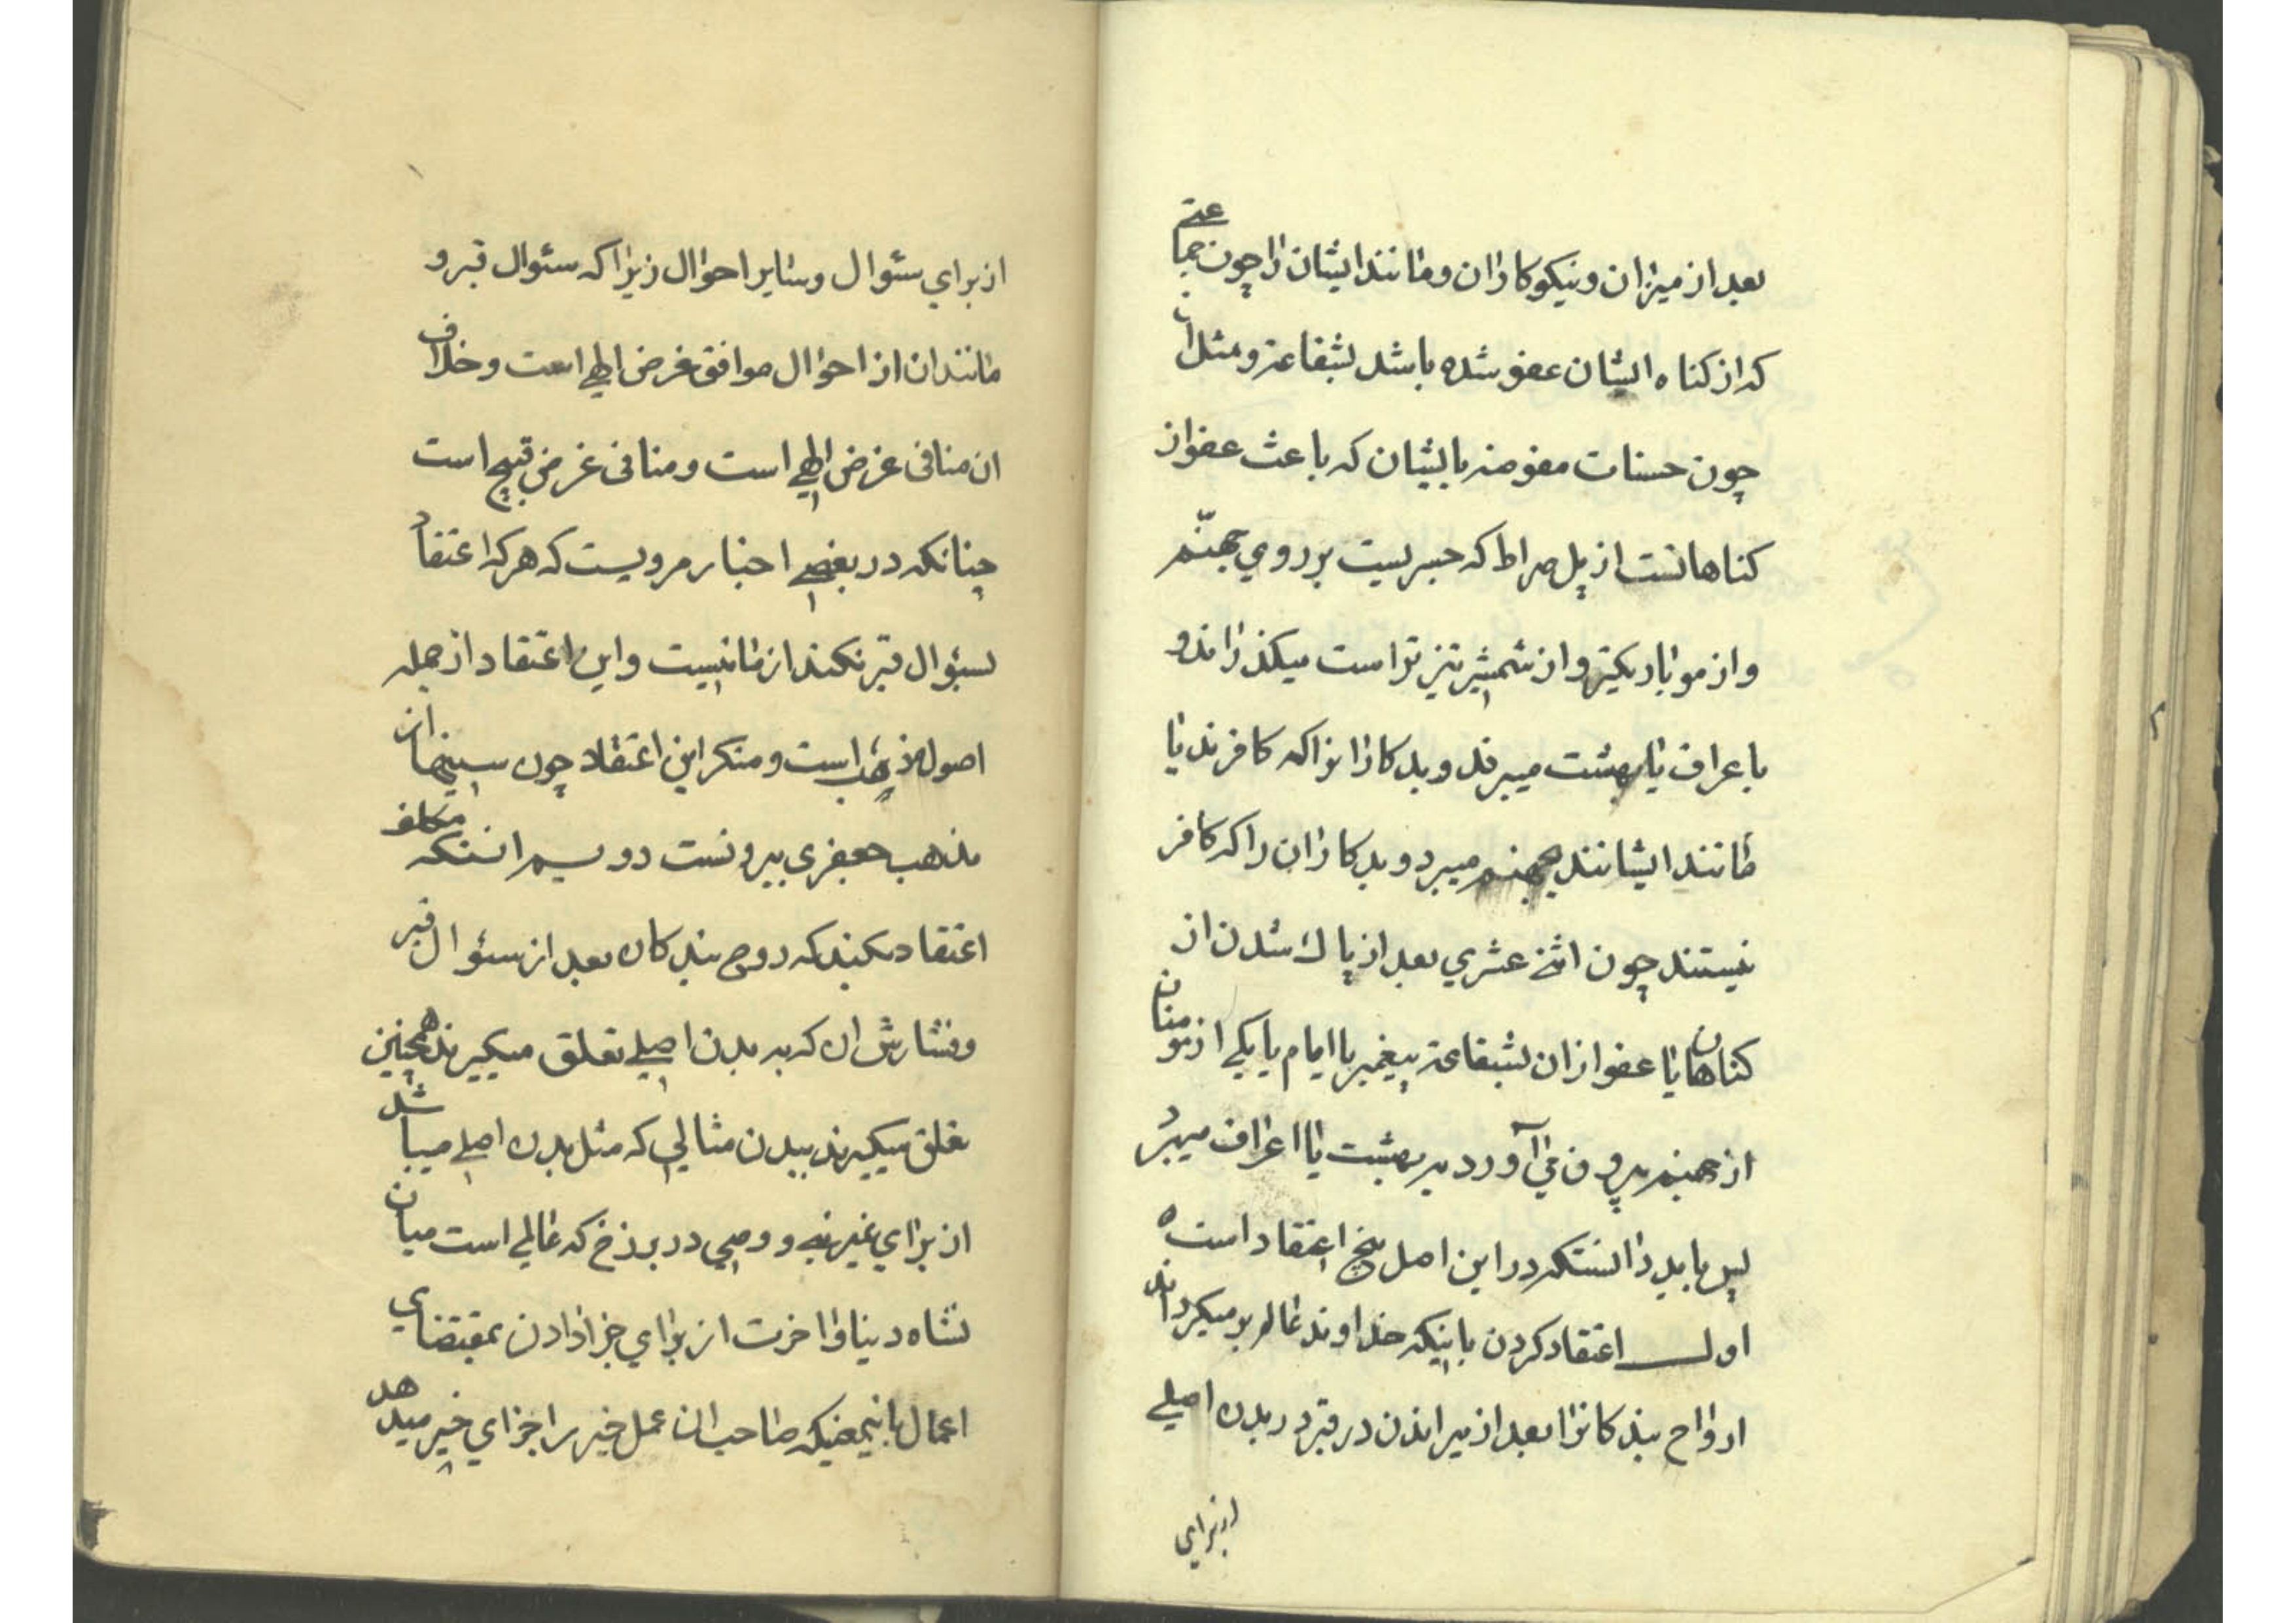 بعد از میزان و نیکوکاران و مانند ایشان را چون جماعتی
که از کناه ایشان عفو شده باشد بشفاعة و مثل ان
چون حسنات مفوضه بایشان که باعث عفو از
کناهانست از پل صراط که جسریست بر روی جهنّم
و از مو باریکتر و از شمشیر تیز تر است میکذراند و
باعراف یا بهشت میبرند و بدکارانرا که کافرند یا
مانند ایشانند بجهنم میبرد و بدکاران را که کافر
نیستند چون اثنی عشری بعد از پاك شدن از
کناهان یا عفو ازان بشفاعة پیغمبر یا امام یا یکی از مومنان
از جهنم بیرون می آورد به بهشت یا اعراف میبرد
پس باید دانستکه در این اصل پنج اعتقاد است ه
اول اعتقاد کردن باینکه خداوند عالم بر میکرداند
ارواح بندکانرا بعد از میراندن در قبر در بدن اصلی
از برای
از برای سئوال و سایر احوال زیرا که سئوال قبر و
مانند ان از احوال موافق غرض الهی است و خلاف
ان منافی غرض الهی است و منافی غرض قبیح است
چنانکه در بعضی اخبار مرویست که هر که اعتقاد
بسئوال قبر نکند از ما نیست و این اعتقاد از جمله
اصول مذهب است و منکر این اعتقاد چون سنیها از
مذهب جعفری بیرونست دویم انستکه مکلف
اعتقاد میکند که روح بندکان بعد از سئوال قبر
و فشارش ان که به بدن اصلی تعلق میکیرند همچنین
تعلق میکیرند ببدن مثالی که مثل بدن اصلی میباشد
از برای غیر نبی و وصی در برزخ که عالمی است میان
نشاه دینا و اخرت از برای جزا دادن بمقتضای
اعمال باینمعنیکه صاحبان عمل خیر را جزای خیر میدهد